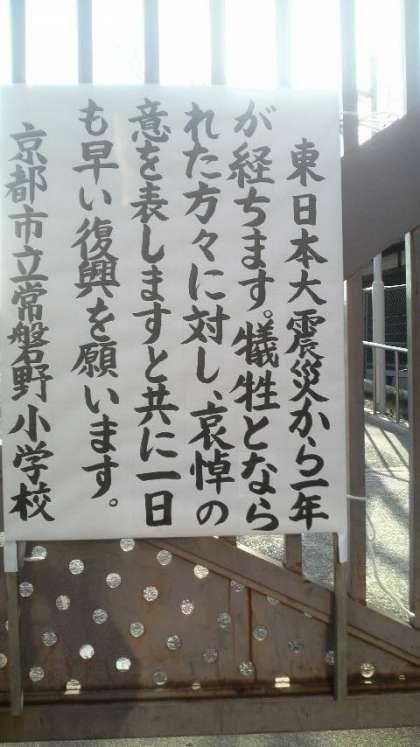 東日本大震災から一年
が経ちます。犠牲となら
れた方々に対し、哀悼の
意を表しますと共に一日
も早い復興を願います。
京都市立常磐野小学校